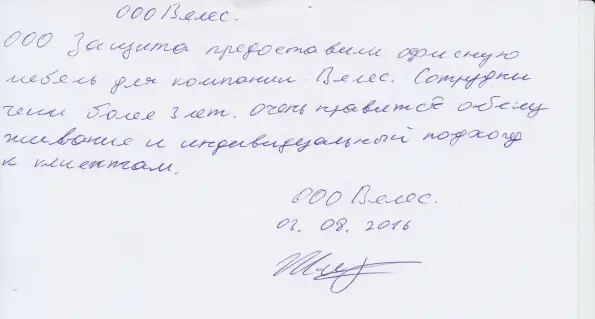 ООО Велес.
ООО Защита предоставили офисную
мебель для компании Велес. Сотрудни
чаем более 3 лет. Очень нравятся обслу
живание и индивидуальный подход
к клиентам.
ООО Велес.
03. 08. 2016